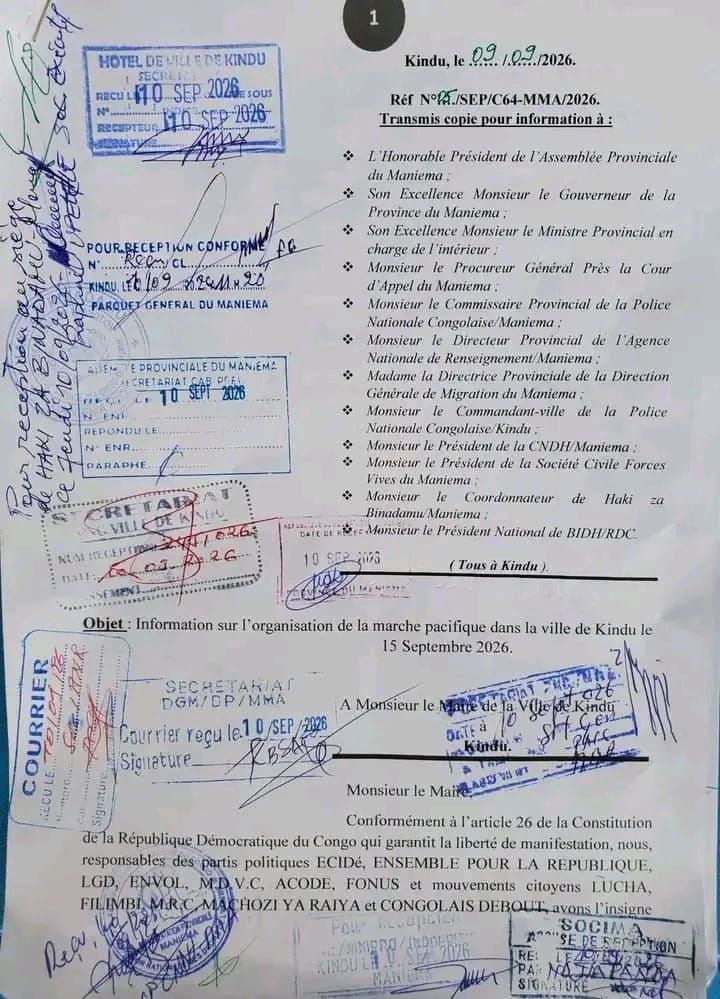 1
Kindu, le 09/09/2026.
Réf N°25/SEP/C64-MMA/2026.
Transmis copie pour information à :
L'Honorable Président de l'Assemblée Provinciale
du Maniema ;
Son Excellence Monsieur le Gouverneur de la
Province du Maniema ;
Son Excellence Monsieur le Ministre Provincial en
charge de l'intérieur ;
Monsieur le Procureur Général Près la Cour
d'Appel du Maniema ;
Monsieur le Commissaire Provincial de la Police
Nationale Congolaise/Maniema ;
Monsieur le Directeur Provincial de l'Agence
Nationale de Renseignement/Maniema ;
Madame la Directrice Provinciale de la Direction
Générale de Migration du Maniema ;
Monsieur le Commandant-ville de la Police
Nationale Congolaise/Kindu ;
Monsieur le Président de la CNDH/Maniema ;
Monsieur le Président de la Société Civile Forces
Vives du Maniema ;
Monsieur le Coordonnateur de Haki za
Binadamu/Maniema ;
Monsieur le Président National de BIDH/RDC.
( Tous à Kindu ).
HOTEL DE VILLE DE KINDU
RECU LE 10 SEP 2026 SOUS
N° 10 SEP 2026
RECEPTEUR
SIGNATURE
POUR RECEPTION CONFORME
N°
KINDU, LE 10/09
PARQUET GENERAL DU MANIEMA
Pour reception au siège
de HAKI ZA BINADAMU
ce Jeudi 10/09/2026
ASSEMBLEE PROVINCIALE DU MANIEMA
SECRETARIAT CAB
RECU LE 10 SEPT 2026
N° ENR
REPONDU LE
N° ENR.
PARAPHE
SECRETARIAT
VILLE DE KINDU
NUM RECEPTION
DATE
DATE DE
10 SEP 2026
PROVINCE DU MANIEMA
Objet : Information sur l'organisation de la marche pacifique dans la ville de Kindu le
15 Septembre 2026.
COURRIER
RECU LE
Numéro
Signature
SECRETARIAT
DGM/DP/MMA
Courrier reçu le 10/SEP/2026
Signature
A Monsieur le Maire de la Ville de Kindu
à
Kindu.
DATE
Monsieur le Maire,
Conformément à l'article 26 de la Constitution
de la République Démocratique du Congo qui garantit la liberté de manifestation, nous,
responsables des partis politiques ECIDé, ENSEMBLE POUR LA REPUBLIQUE,
LGD, ENVOL, M.D.V.C, ACODE, FONUS et mouvements citoyens LUCHA,
FILIMBI, M.R.C, MACHOZI YA RAIYA et CONGOLAIS DEBOUT, avons l'insigne
Reçu
MANIEMA
Pour Reception
KINDU LE 10 SEP 2026
MANIEMA
SOCIMA
ACCUSE DE RECEPTION
SIGNATURE